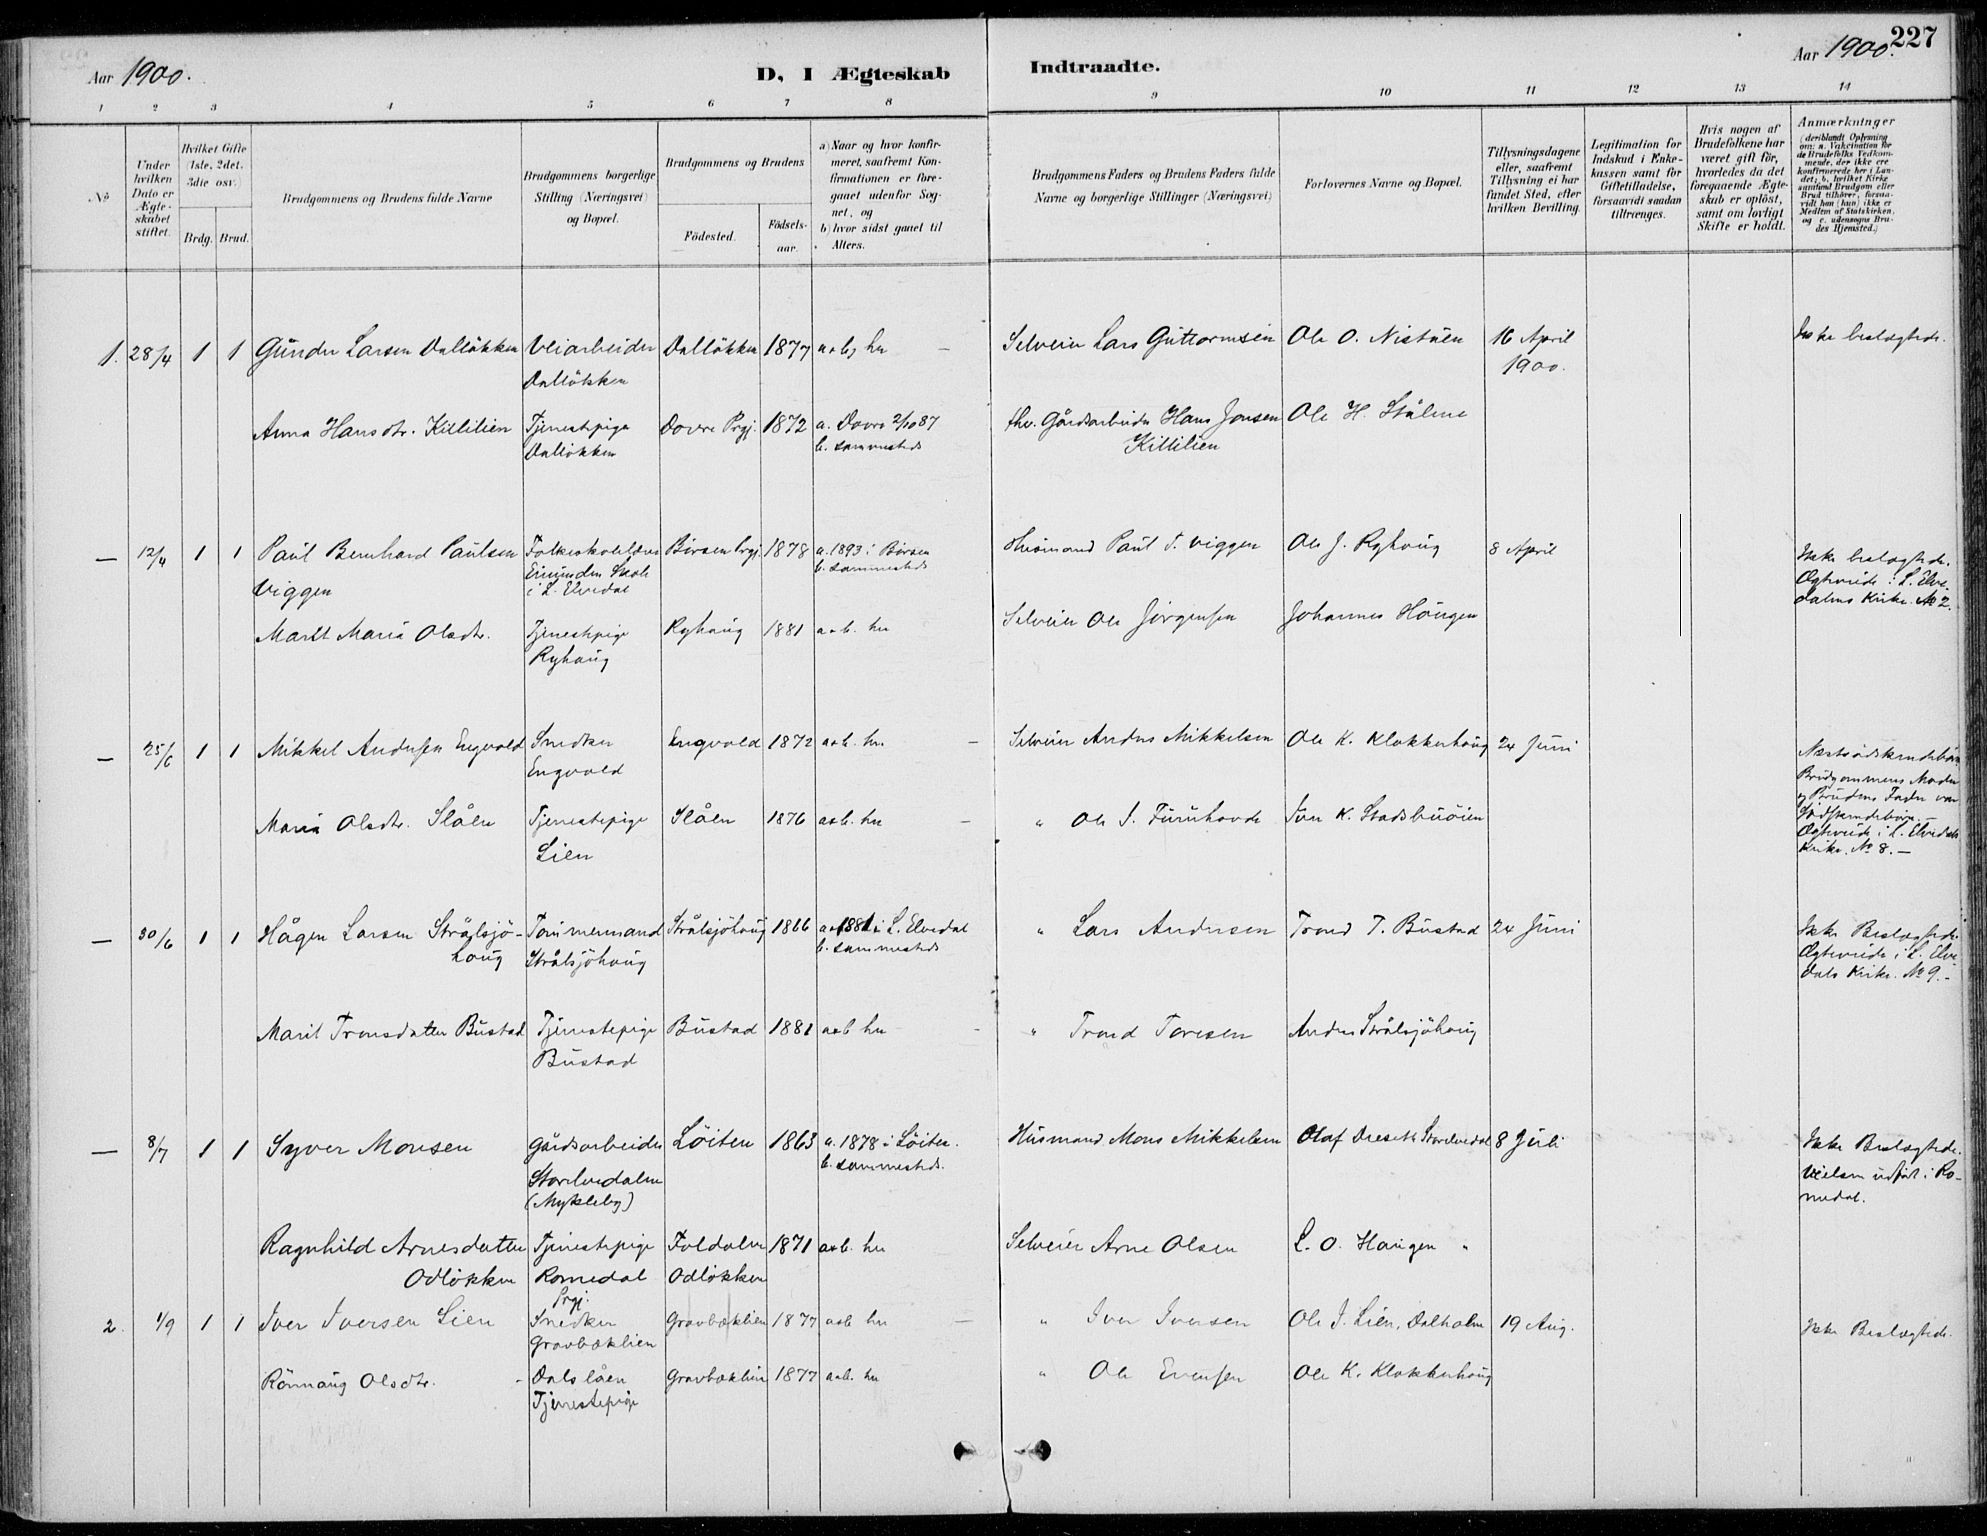 Aar 1900.
D, I Ægteskab
Indtraadte.
Aar 1900.
227
1 2 3 4 5 6 7 8 9 10 11 12 13 14
No
Under hvilken Dato er Ægteskabet stiftet.
Hvilket Gifte (1ste, 2det, 3die osv.)
Brdg. Brud.
Brudgommens og Brudens fulde Navne
Brudgommens borgerlige Stilling (Næringsvei) og Bopæl.
Brudgommens og Brudens
Fødested.
Fødselsaar.
a) Naar og hvor konfirmeret, saafremt Konfirmationen er foregaaet udenfor Sognet, og
b) hvor sidst gaaet til Alters.
Brudgommens Faders og Brudens Faders fulde Navne og borgerlige Stillinger (Næringsvei)
Forlovernes Navne og Bopæl.
Tillysningsdagene eller, saafremt Tillysning ei har fundet Sted, efter hvilken Bevilling.
Legitimation for Indskud i Enkekassen samt for Giftetilladelse, forsaavidt saadan tiltrænges.
Hvis nogen af Brudefolkene har været gift før, hvorledes da det foregaaende Ægteskab er opløst, samt om lovligt Skifte er holdt.
Anmærkninger
(deriblandt Oplysning om: a. Vakcination for de Brudefolks Vedkommende, der ikke ere konfirmerede her i Landet; b. hvilket Kirkesamfund Brudgom eller Brud tilhører, forsaavidt han (hun) ikke er Medlem af Statskirken, og c. udensogns Brudes Hjemsted.)
1. 28/4 1 1 Gunder Larsen Dalløkken Veiarbeider Dalløkken 1877 a+b, her Selveier Lars Guttormsen Ole O. Nistuen 16 April Ikke beslægtede.
Dalløkken 1900.
Anna Hansdtr. Killilien Tjenestepige Dovre Prgj. 1872 a. Dovre 2/10 87 fhv. Gårdsarbeider Hans Jonsen Ole H. Stålene
Dalløkken b. sammesteds Killilien
— 12/4 1 1 Paul Bernhard Paulsen Folkeskolelærer Børsen Prgj 1878 a. 1893 i Børsen Husmand Paul T. Viggen Ole J. Ryhaug 8 April Ikke beslægtede.
Viggen Eimunden Skole b. sammesteds Ægteviede i L. Elve-
i L. Elvedal dalens Kirke. No 2.
Marit Maria Olsdtr. Tjenestepige Ryhaug 1881 a+b. her Selveier Ole Jørgensen Johannes Haugen
Ryhaug
— 25/6 1 1 Mikkel Andersen Engvold Snedker Engvold 1872 a+b. her — Selveier Anders Mikkelsen Ole K. Klokkerhaug 24 Juni Næstsødskendebørn
Engvold Brudgommens Moder
og Brudens Fader var
Maria Olsdtr. Slåen Tjenestepige Slåen 1876 a+b. her — " Ole S. Furuhovde K. Stadsbuøien Sødskendebørn. —
Lien Ægteviede i L. Elvedals
Kirke. No 8. —
— 30/6 1 1 Hågen Larsen Strålsjø- Tømmermand Strålsjøhaug 1866 a. 1881 i L. Elvedal " Lars Andersen Trond T. Bustad 24 Juni Ikke Beslægtede.
haug Strålsjøhaug b. sammesteds Ægteviede i L. Elve-
dals Kirke. No 9. —
Marit Tronsdatter Bustad Tjenestepige Bustad 1881 a+b her — " Trond Toresen Anders Strålsjøhaug
Bustad
— 8/7 1 1 Syver Monsen Gårdsarbeider Løiten 1863 a. 1878 i Løiten. Husmand Mons Mikkelsen Olaf Storelvedal 8 Juli Ikke Beslægtede.
Storelvedalen b. sammesteds. Vielsen udført i Ro-
(Mykleby) medal.
Ragnhild Arnesdatter Tjenestepige Foldalen 1871 a+b. her Selveier Arne Olsen L. O. Haugen "
Odløkken Romedal Odløkken
Prgj.
2. 1/9 1 1 Iver Iversen Lien Snedker Gravbæklien 1877 a+b her — " Iver Iversen Ole J. Lien, Dalholm 19 Aug. Ikke Beslægtede.
Gravbæklien
Rønnaug Olsdtr. - Dalslåen Gravbæklien 1877 a+b. her " Ole Evensen Ole K. Klokkerhaug
Tjenestepige